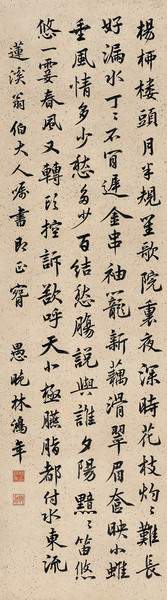 楊柳樓頭月半規笙歌院裏夜深時花枝灼灼難長
好漏水丁丁不肯遲金串袖籠新藕滑翠眉奩映小蛾
垂風情多少愁多少百結愁腸說與誰夕陽黯黯笛悠
悠一霎春風又轉頭控訴欲呼天北極臙脂都付水東流
蓮溪翁伯大人囑書即正
愚晚林鴻年